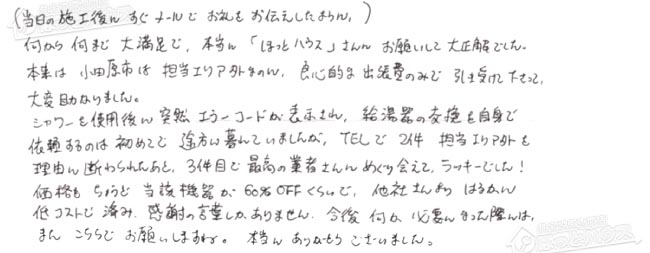 (当日の施工後に すぐメールで お礼を お伝えしたまらん。)
何から 何まで 大満足で、本当に「ほっとハウス」さんに お願いして 大正解でした。
本来は 小田原市は 担当エリア外なのに、良心的な 出張費のみで 引き受けて下さって、
大変助かりました。
シャワーを使用後に 突然 エラーコードが 表示され、給湯器の交換を自身で
依頼するのは 初めてで 途方に暮れていましたが、TELで 2件 担当エリア外を
理由に 断わられたあと、3件目で 最高の業者さんに めぐり会えて、ラッキーでした!
価格も ちょうど 当該機器が 60% OFFくらいで、他社さんより はるかに
低コストで 済み、感謝の言葉しかありません。今後 何か 必要になった際には、
また こちらで お願いしますね。本当に ありがとう ございました。